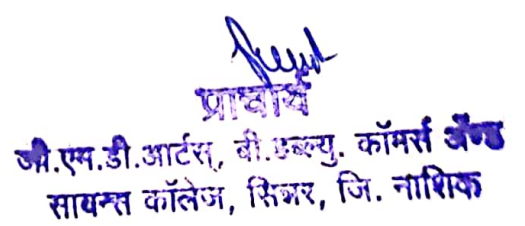 प्राचार्य
जी.एम.डी.आर्टस्, बी.डब्ल्यु. कॉमर्स ॲण्ड
सायन्स कॉलेज, सिन्नर, जि. नाशिक